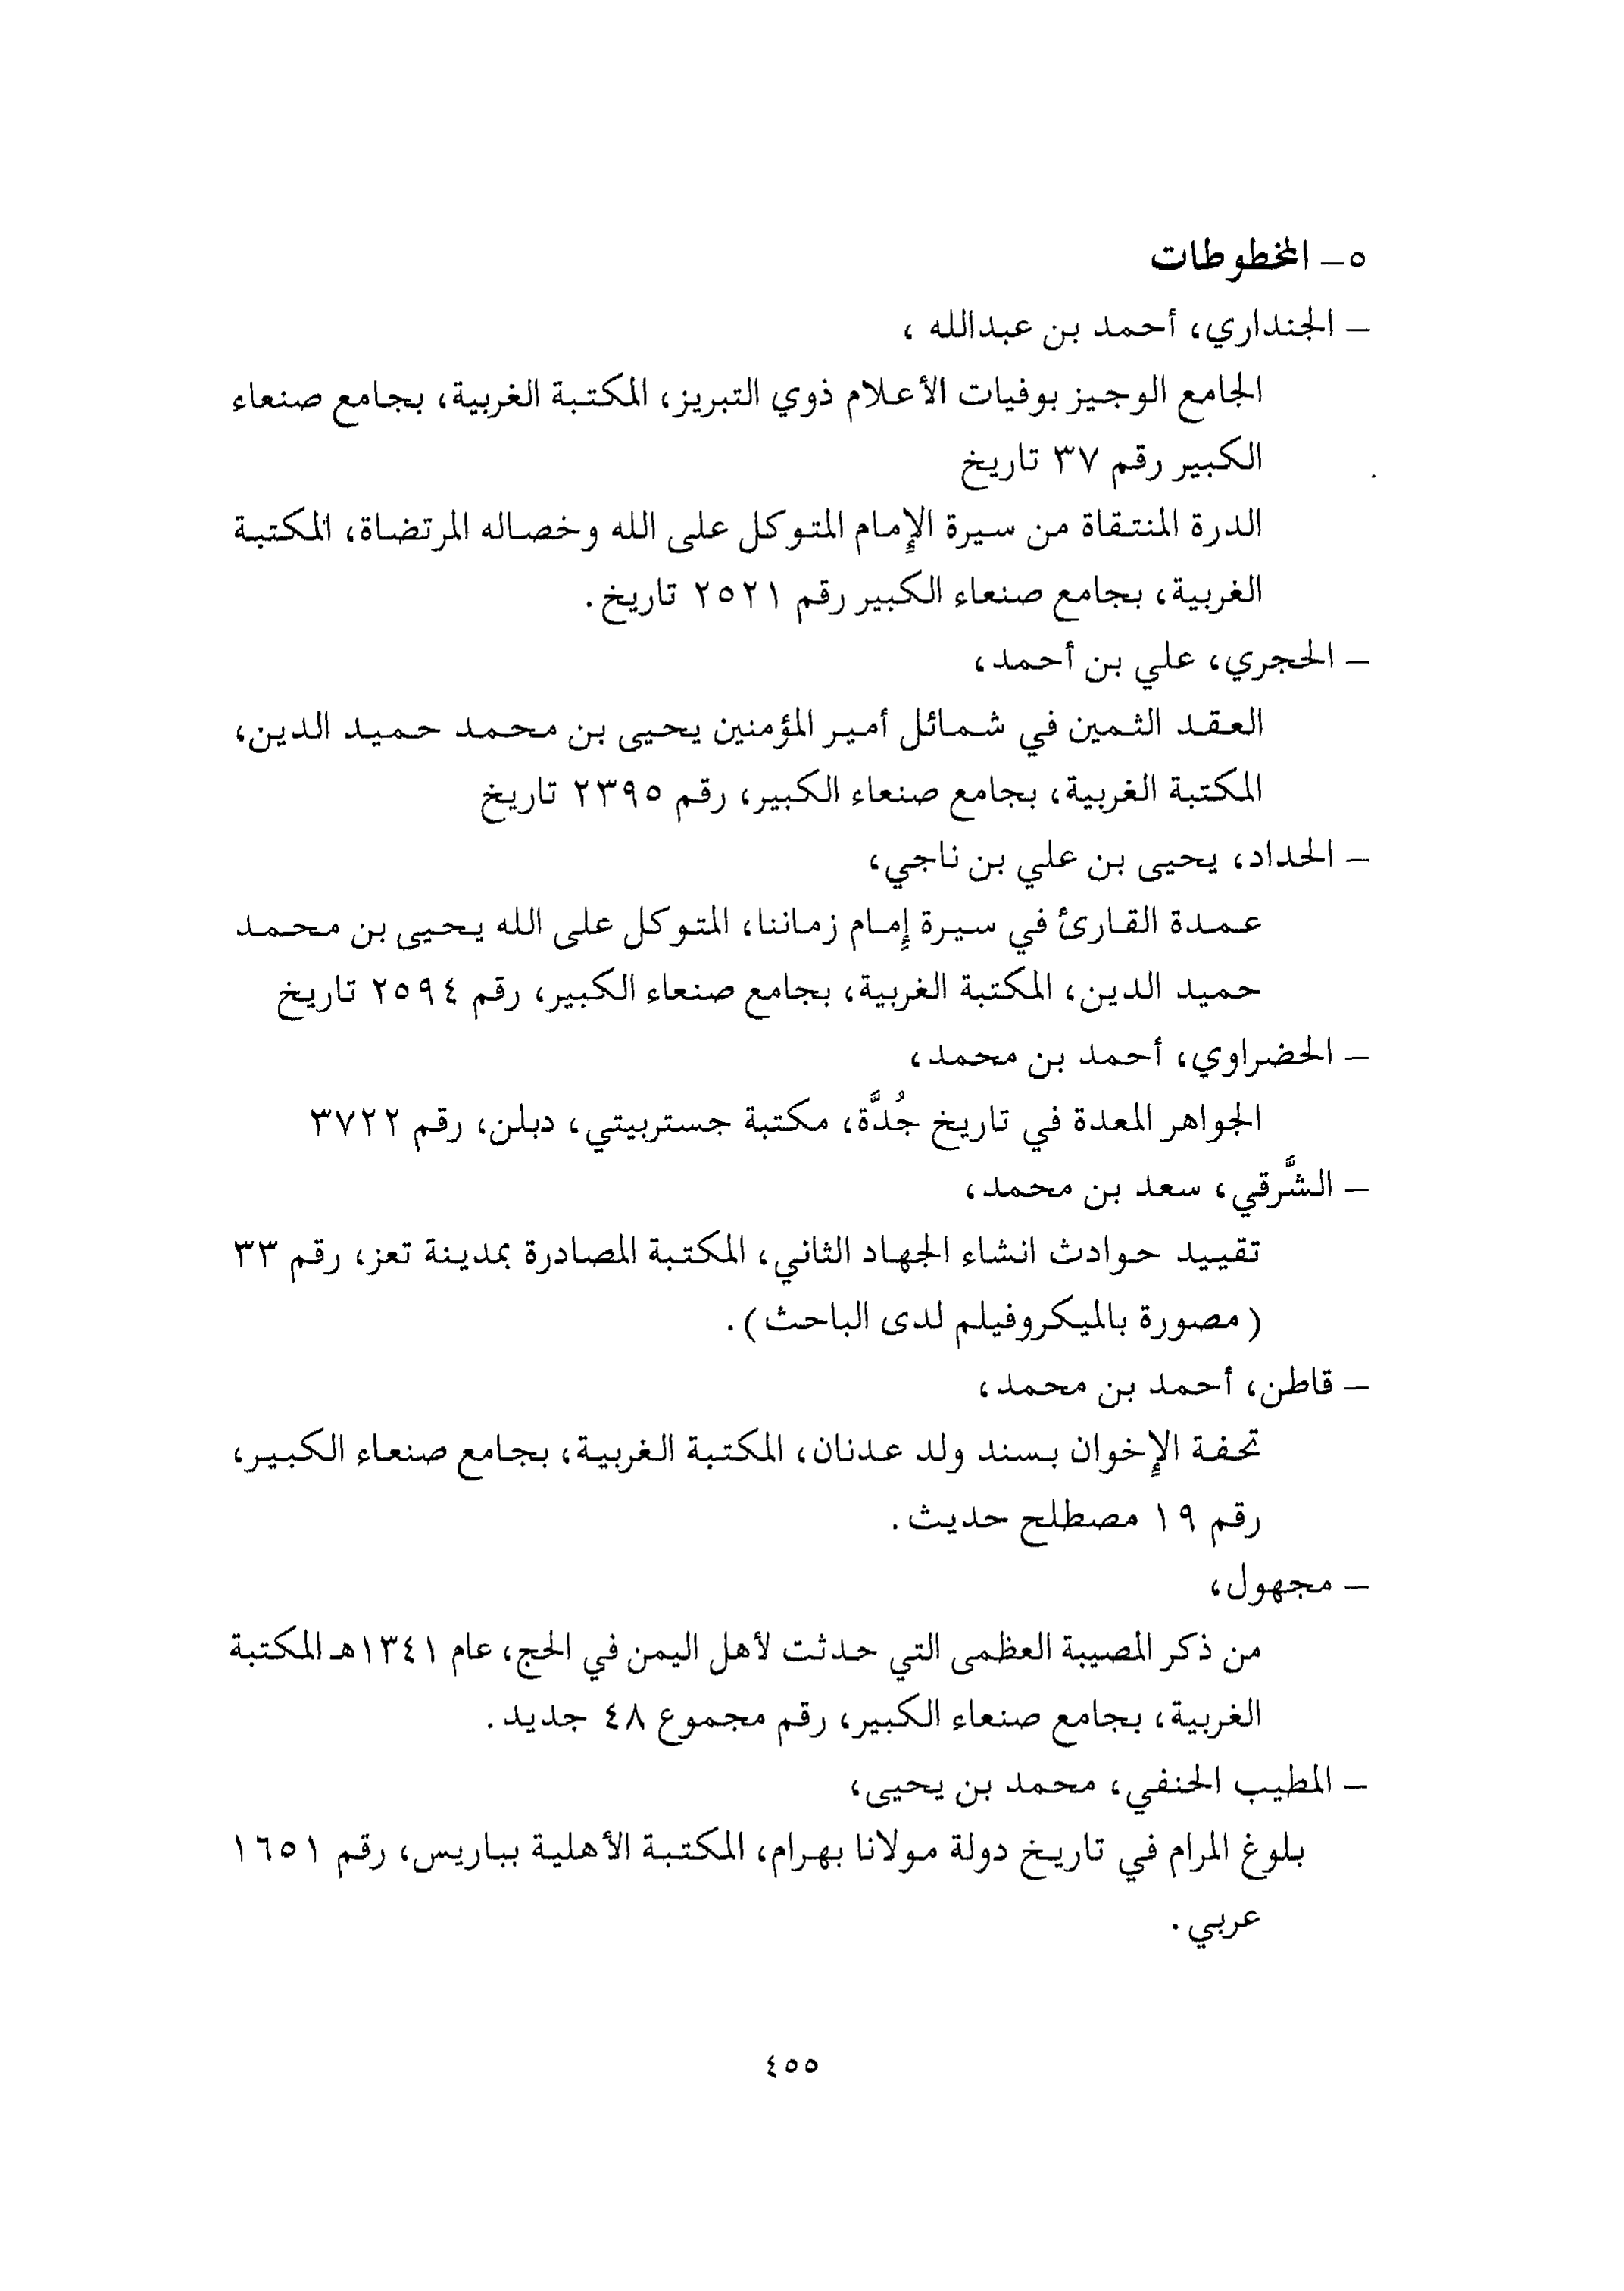 ٥ – المخطوطات
– الجنداري، أحمد بن عبدالله ،
الجامع الوجيز بوفيات الأعلام ذوي التبريز، المكتبة الغربية، بجامع صنعاء
الكبير رقم ٣٧ تاريخ
الدرة المنتقاة من سيرة الإمام المتوكل على الله وخصاله المرتضاة، المكتبة
الغربية، بجامع صنعاء الكبير رقم ٢٥٢١ تاريخ.
– الحجري، علي بن أحمد،
العقد الثمين في شمائل أمير المؤمنين يحيى بن محمد حميد الدين،
المكتبة الغربية، بجامع صنعاء الكبير، رقم ٢٣٩٥ تاريخ
– الحداد، يحيى بن علي بن ناجي،
عمدة القارئ في سيرة إمام زماننا، المتوكل على الله يحيى بن محمد
حميد الدين، المكتبة الغربية، بجامع صنعاء الكبير، رقم ٢٥٩٤ تاريخ
– الحضراوي، أحمد بن محمد،
الجواهر المعدة في تاريخ جُدَّة، مكتبة جستربيتي، دبلن، رقم ٣٧٢٢
– الشَّرقي، سعد بن محمد،
تقييد حوادث انشاء الجهاد الثاني، المكتبة المصادرة بمدينة تعز، رقم ٣٣
(مصورة بالميكروفيلم لدى الباحث).
– قاطن، أحمد بن محمد،
تحفة الإخوان بسند ولد عدنان، المكتبة الغربية، بجامع صنعاء الكبير،
رقم ١٩ مصطلح حديث.
– مجهول،
من ذكر المصيبة العظمى التي حدثت لأهل اليمن في الحج، عام ١٣٤١هـ المكتبة
الغربية، بجامع صنعاء الكبير، رقم مجموع ٤٨ جديد.
– المطيب الحنفي، محمد بن يحيى،
بلوغ المرام في تاريخ دولة مولانا بهرام، المكتبة الأهلية بباريس، رقم ١٦٥١
عربي.
٤٥٥